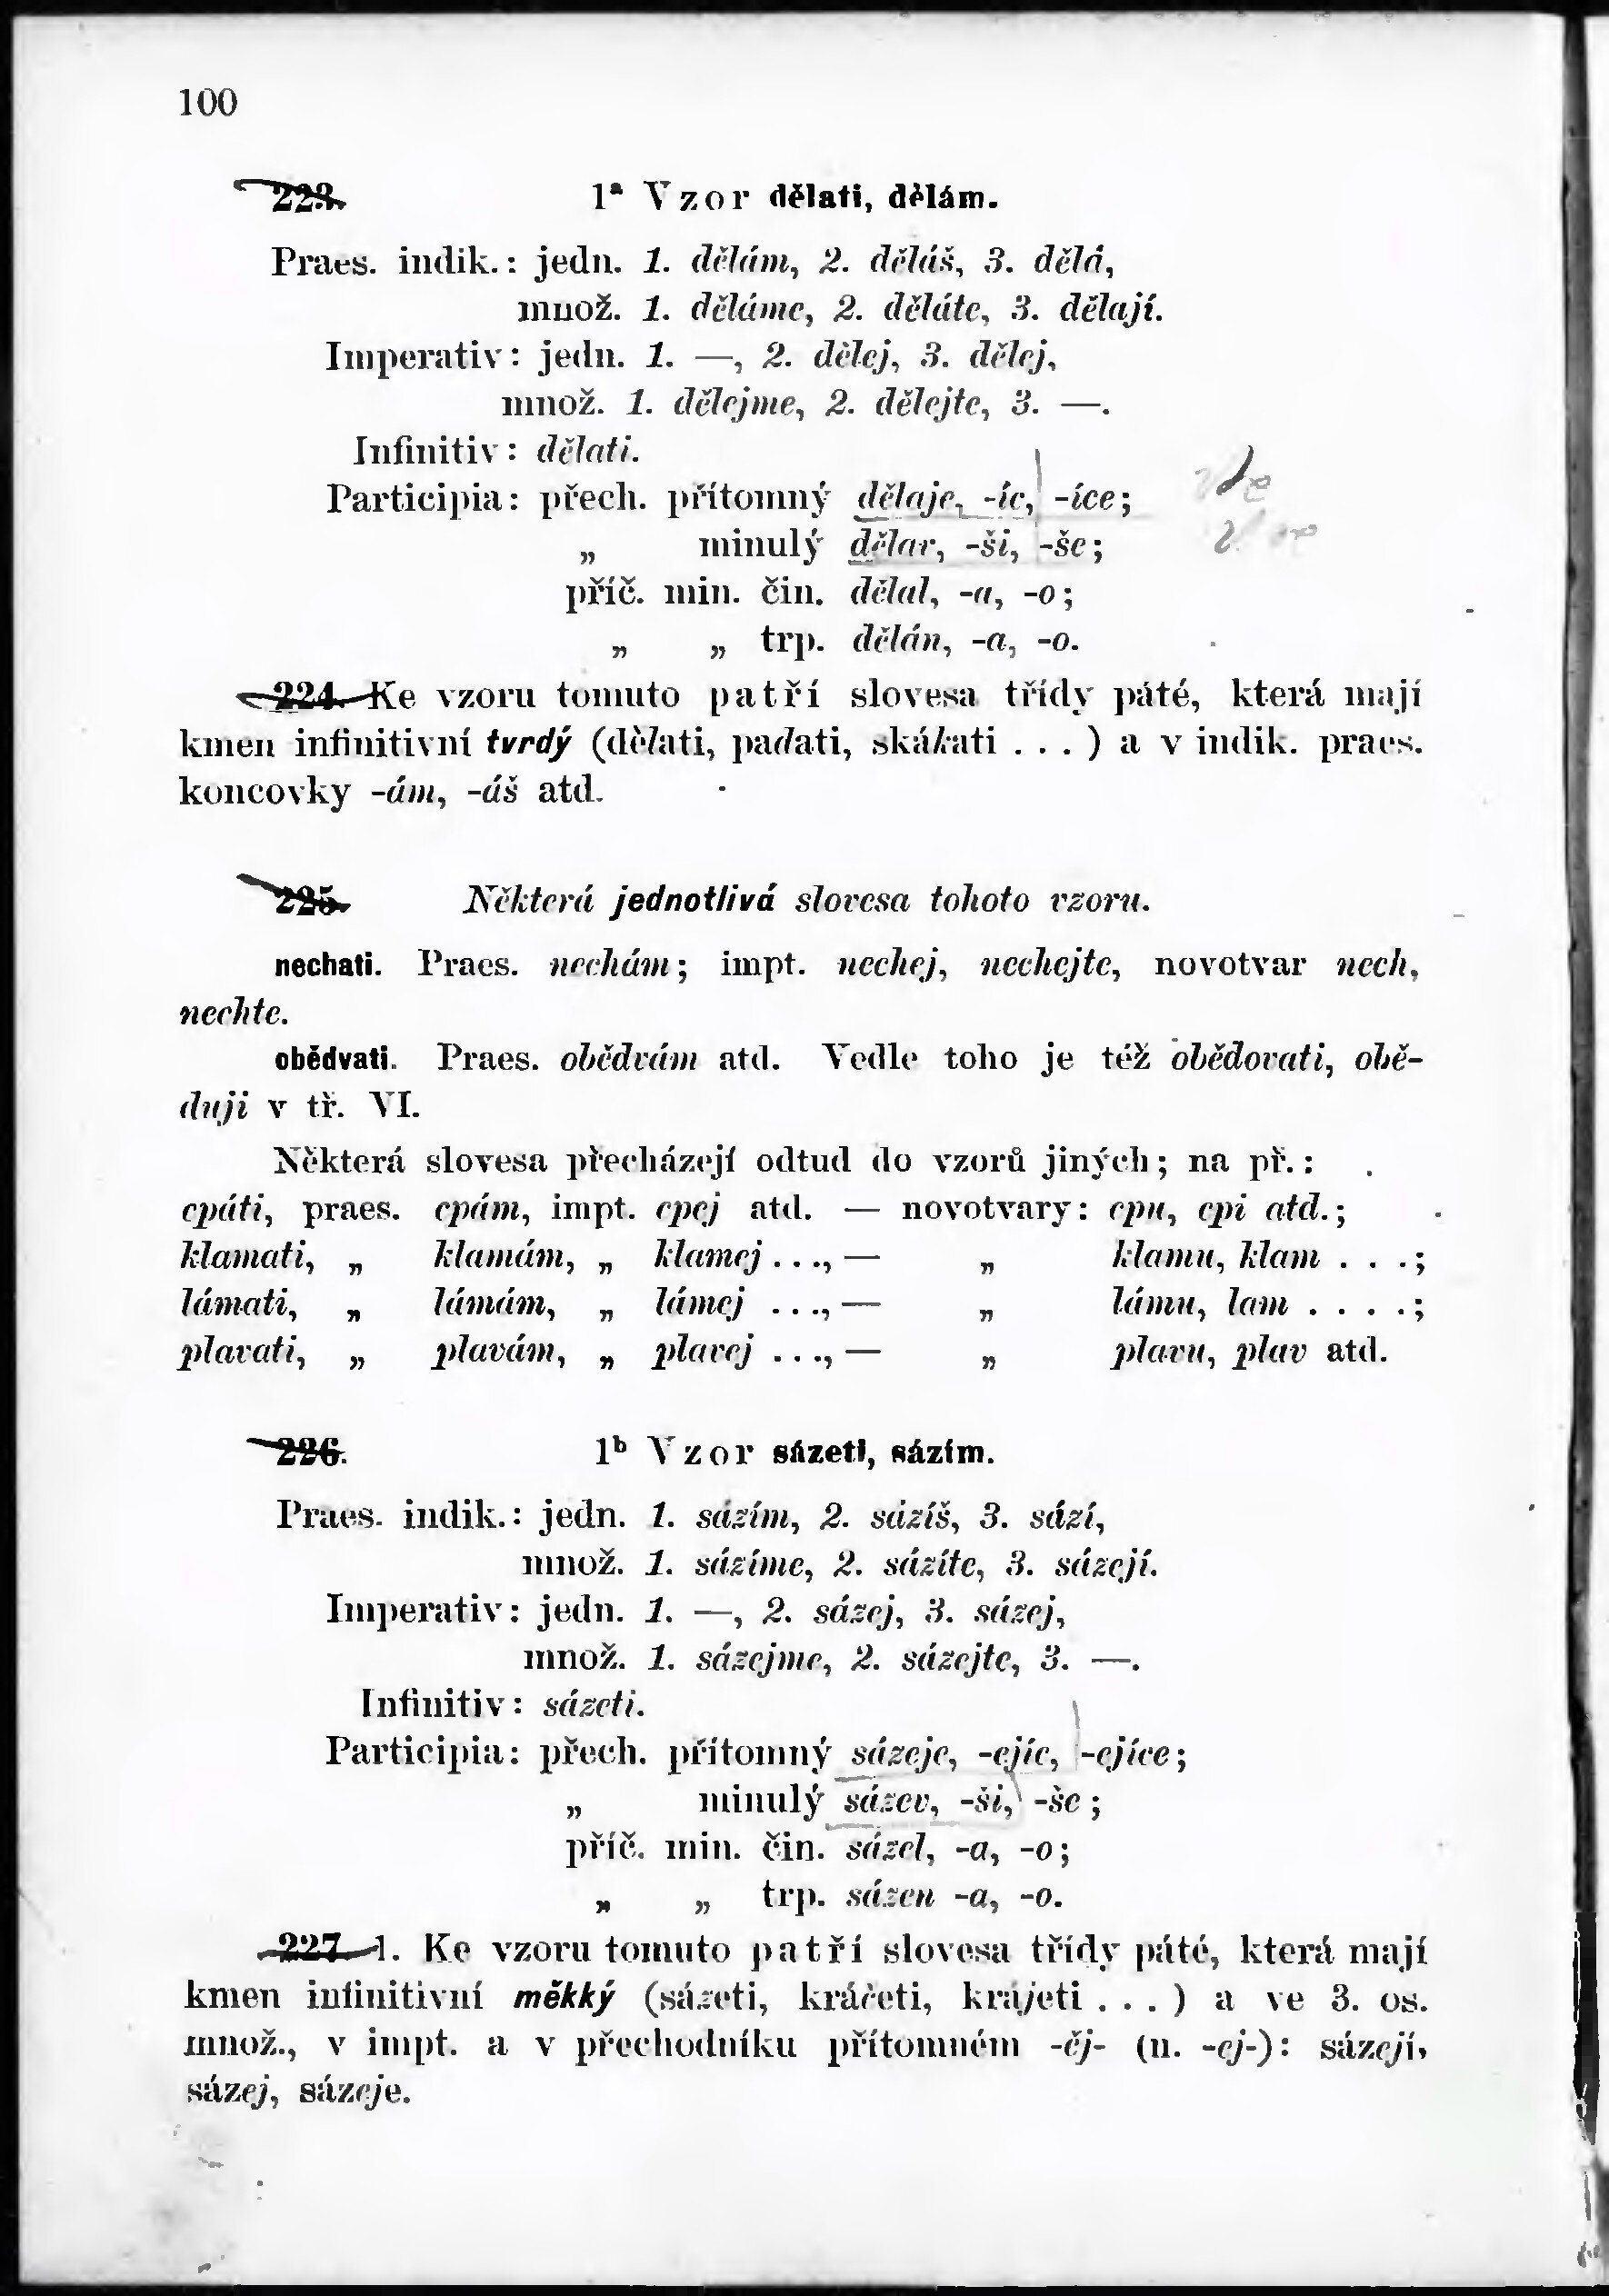 100
223. 1a Vzor dělati, dělám.
Praes. indik.: jedn. 1. dělám, 2. děláš, 3. dělá,
množ. 1. děláme, 2. děláte, 3. dělají.
Imperativ: jedn. 1. —, 2. dělej, 3. dělej,
množ. 1. dělejme, 2. dělejte, 3. —.
Infinitiv: dělati.
Participia: přech. přítomný dělaje, -íc, -íce;
„ minulý dělav, -ši, -še;
příč. min. čin. dělal, -a, -o;
„ „ trp. dělán, -a, -o.
224. Ke vzoru tomuto patří slovesa třídy páté, která mají
kmen infinitivní tvrdý (dělati, padati, skákati . . . ) a v indik. praes.
koncovky -ám, -áš atd.
225. Některá jednotlivá slovesa tohoto vzoru.
nechati. Praes. nechám; impt. nechej, nechejte, novotvar nech,
nechte.
obědvati. Praes. obědvám atd. Vedle toho je též obědovati, obě-
duji v tř. VI.
Některá slovesa přecházejí odtud do vzorů jiných; na př.:
cpáti, praes. cpám, impt. cpej atd. — novotvary: cpu, cpi atd.;
klamati, „ klamám, „ klamej . . ., — „ klamu, klam . . .;
lámati, „ lámám, „ lámej . . ., — „ lámu, lam . . . .;
plavati, „ plavám, „ plavej . . ., — „ plavu, plav atd.
226. 1b Vzor sázeti, sázím.
Praes. indik.: jedn. 1. sázím, 2. sázíš, 3. sází,
množ. 1. sázíme, 2. sázíte, 3. sázejí.
Imperativ: jedn. 1. —, 2. sázej, 3. sázej,
množ. 1. sázejme, 2. sázejte, 3. —.
Infinitiv: sázeti.
Participia: přech. přítomný sázeje, -ejíc, -ejíce;
„ minulý sázev, -ši, -še;
příč. min. čin. sázel, -a, -o;
„ „ trp. sázen -a, -o.
227. 1. Ke vzoru tomuto patří slovesa třídy páté, která mají
kmen infinitivní měkký (sázeti, kráčeti, krájeti . . . ) a ve 3. os.
množ., v impt. a v přechodníku přítomném -ěj- (n. -ej-): sázejí,
sázej, sázeje.